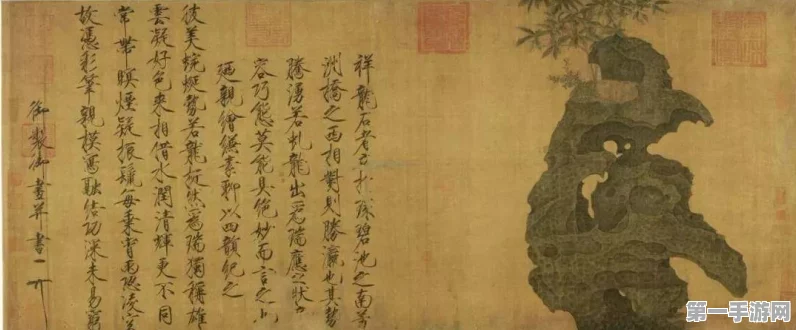 祥龍石者立於環碧池之南芳
洲橋之西相對則勝瀛也其勢
騰湧若虬龍出為瑞應之狀奇
容巧態莫能具絕妙而言之也
廼親繪縑素聊以四韻紀之
彼美蜿蜒勢若龍挺然為瑞獨稱雄
雲凝好色來相借水潤清輝更不同
常帶暝煙疑振鬣每乘宵雨恐凌空
故憑彩筆親模寫融結功深未易窮
御製御畫并書
第一手游网